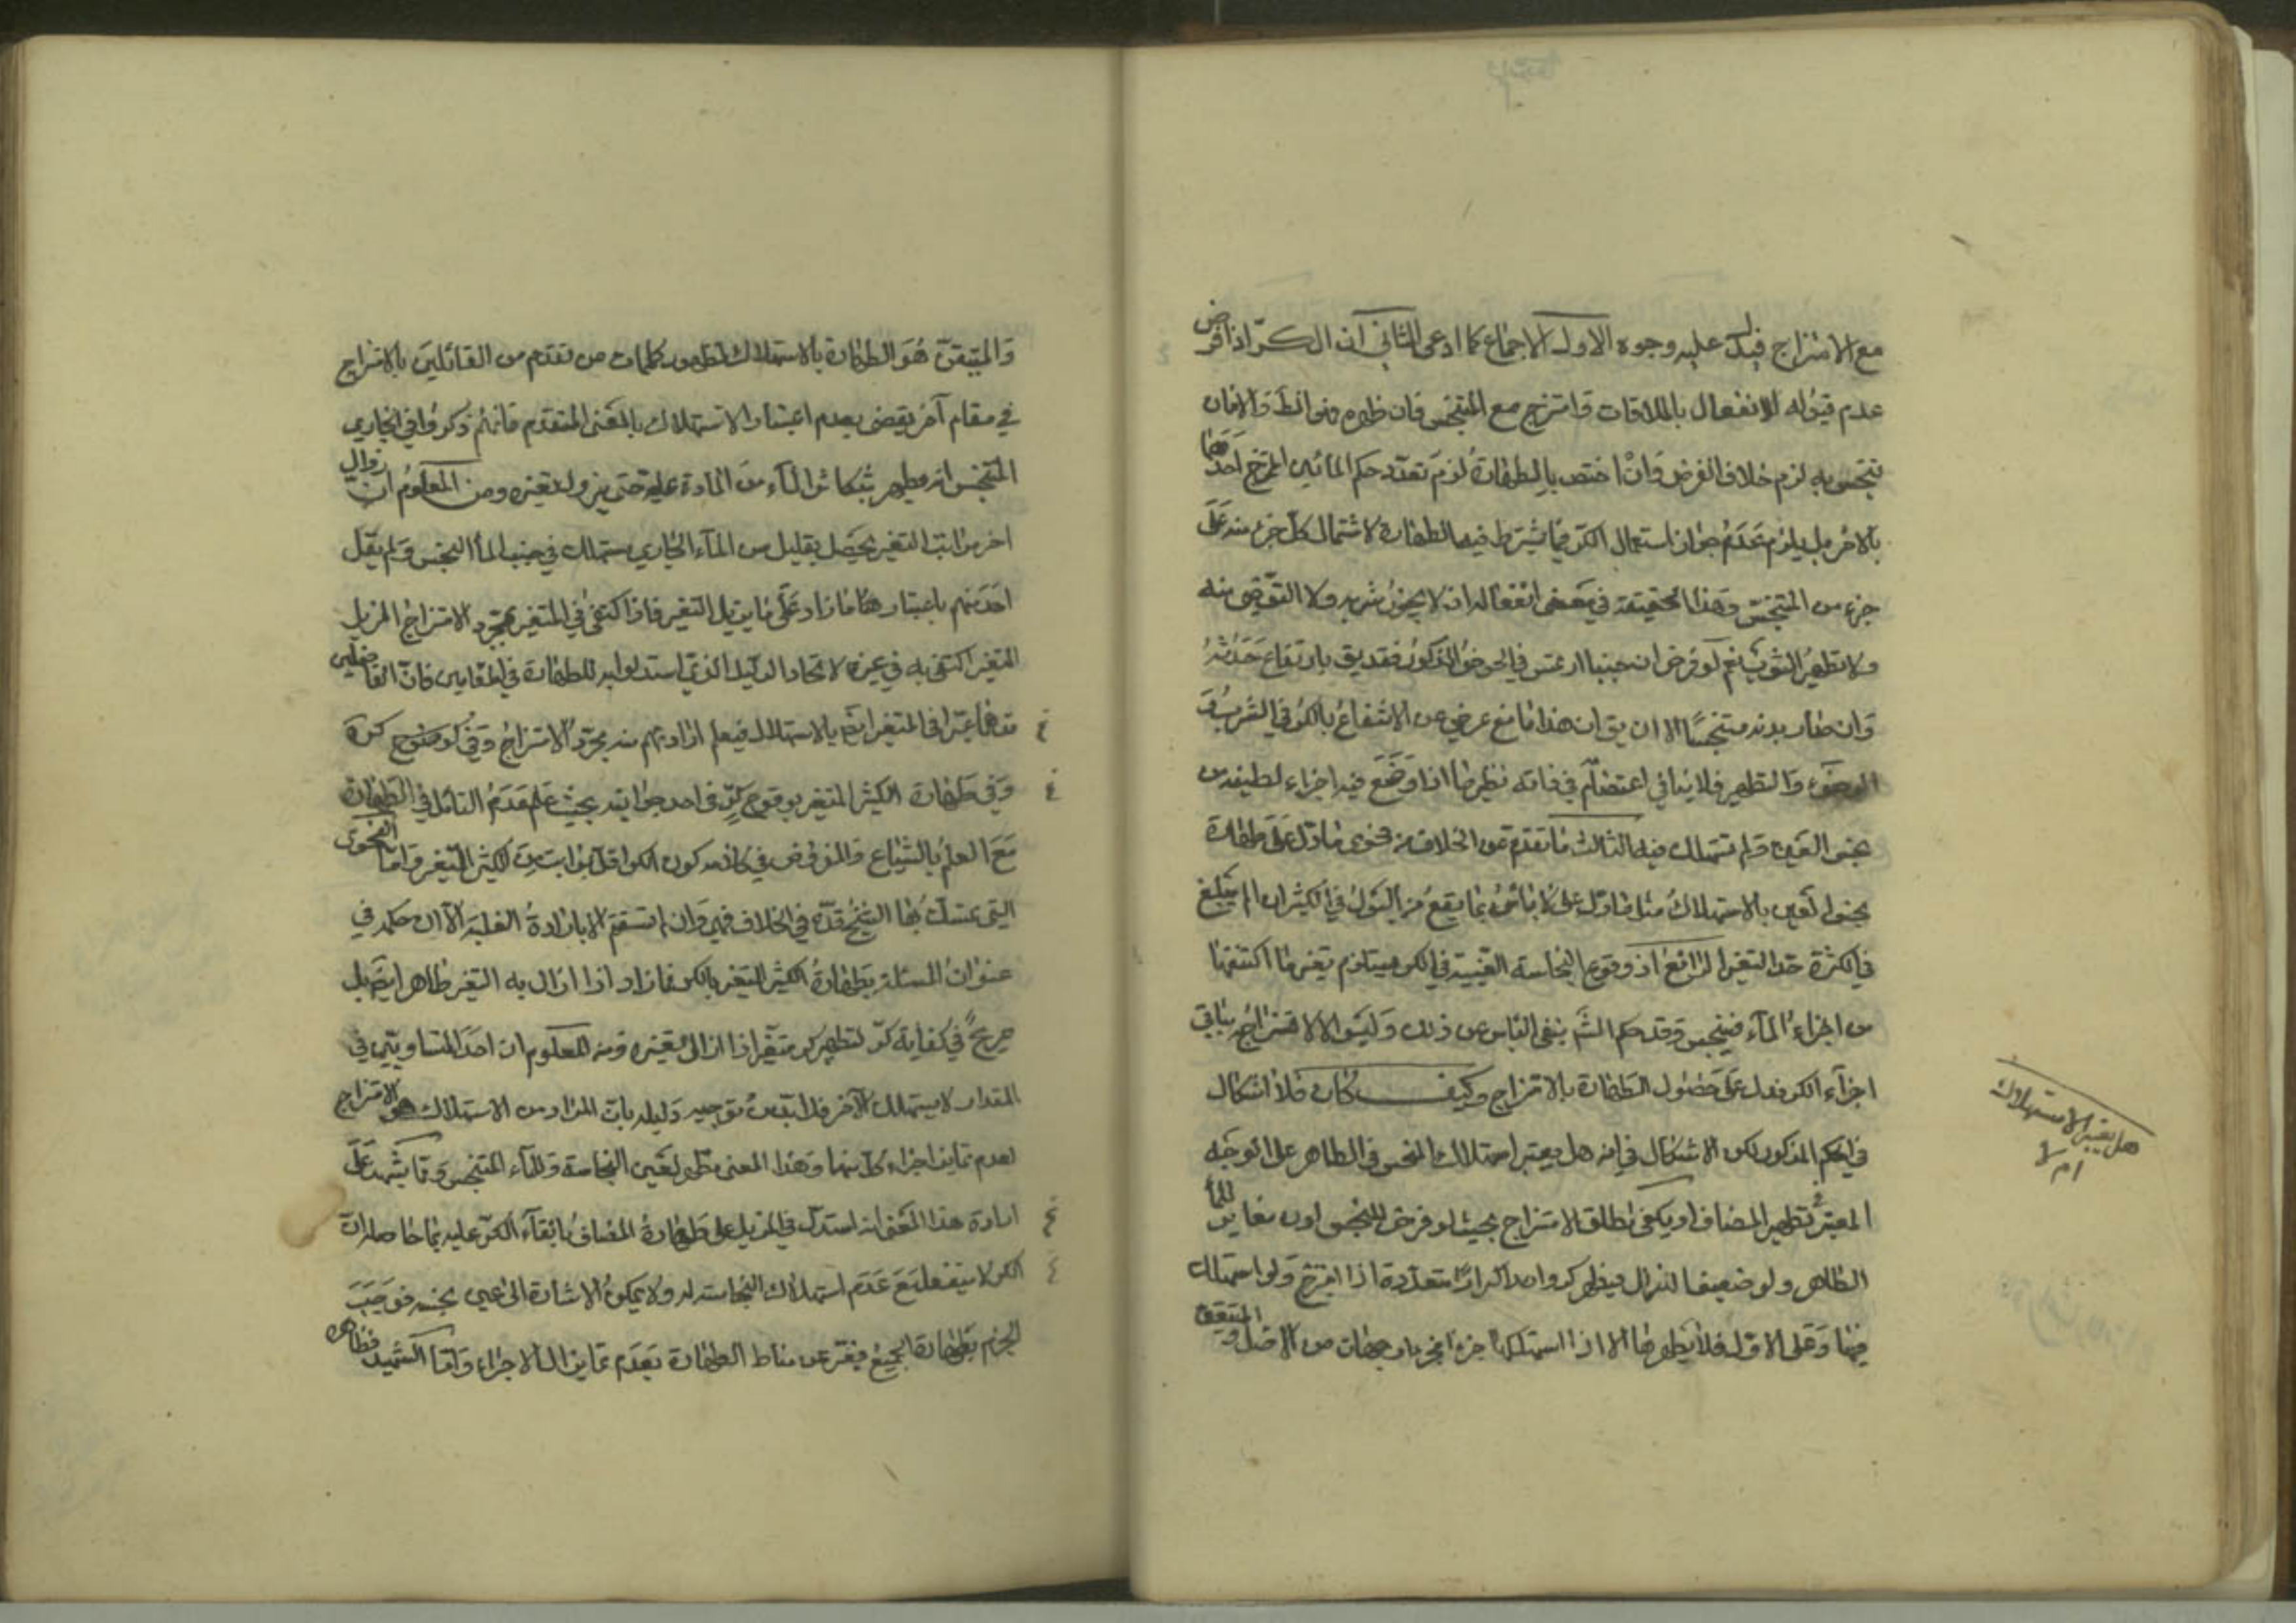 مع الامتزاج فيدل عليه وجوه الاول الاجماع كما ادعى الثاني ان الكر اذا فرض
عدم قبوله للانفعال بالملاقات وامتزج مع المتنجس فان طهره فهو المط والافان
تنجس به لزم خلاف الفرض وان اختص بالطهارة لزم تعدد حكم المائين الممتزج احدهما
بالاخر بل يلزم عدم جواز استعمال الكر فيما يشترط فيه الطهارة لاشتمال كل جزء منه على
جزء من المتنجس وهذا في الحقيقة في معنى انفعاله اذ لا يجوز شربه ولا التوضي منه
ولا تطهير الثوب نعم لو فرض ان جنبا ارتمس في الحوض المذكور فقد يق بارتفاع حدثه
وان صار بدنه متنجسا الا ان يق ان هذا مانع عرضي عن الانتفاع بالكر في الشرب و
الوضوء والتطهير فلا ينافي اعتصامه في ذاته نظير ما اذا وضع فيه اجزاء لطيفة من
نجس العين ولم تستهلك فيه الثالث ما تقدم عن الخلاف من فحوى ما دل على طهارة
نجس العين بالاستهلاك مثل ما دل على لا باس بما يقع من البول في الكثير اذا لم يبلغ
في الكثرة حد التغير الرابع ان وقوع النجاسة العينية في الكر يستلزم تغير ما اكتنفها
من اجزاء الماء فينجس وقد حكم الشم بنفي الباس عن ذلك وليس الا لامتزاجه بباقي
اجزاء الكر فدل على حصول الطهارة بالامتزاج وكيف كان فلا اشكال
في الحكم المذكور لكن الاشكال في انه هل يعتبر استهلاك النجس في الطاهر على الوجه
المعتبر في تطهير المضاف او يكفي مطلق الامتزاج بحيث لو فرض للنجس لون مغاير للماء
الطاهر ولو ضعيفا لزال فيطهر كر واحد اكرارا متعددة اذا امتزج ولو استهلك
فيها وعلى الاول فلا يطهرها الا اذا استهلكها جزء فجزء وجهان من الاصل والمتيقن
هل يعتبر الاستهلاك
ام لا
والمتيقن هو الطهارة بالاستهلاك لظهور كلمات من تقدم من القائلين بالامتزاج
في مقام آخر يقضي بعدم اعتبار الاستهلاك بالمعنى المتقدم فانهم ذكروا في الجاري
المتنجس انه يطهر بتكاثر الماء من المادة عليه حتى يزول تغيره ومن المعلوم ان زوال
اخر مراتب التغير يحصل بقليل من الماء الجاري يستهلك في جنب الماء النجس ولم يقل
احد منهم باعتبار ما زاد على ما يزيل التغير فاذا اكتفى في المتغير بمجرد الامتزاج المزيل
المتغير اكتفى به في غيره لاتحاد الدليل الذي استدلوا به للطهارة في المقامين فان الفاضلين
قد عبرا في المتغير ايضا بالاستهلاك فيعلم ارادتهم منه مجرد الامتزاج
وفي طهارة الكثير المتغير بوقوع كر في احد جوانبه بحيث علم عدم
مع العلم بالشياع والمفروض في كلامه كون الكر اقل بمراتب من الكثير المتغير واما الفحوى
التي تمسك بها الشيخ قده في الخلاف فهي وان لم تستقم الا بارادة الغلبة الا ان حكمه في
عنوان المسئلة بطهارة الكثير المتغير بالكر فما زاد اذا ازال به التغير ظاهر ايضا بل
صريح في كفاية كر لتطهير كر متغير اذا ازال تغيره ومن المعلوم ان احد المتساويين في
المقدار لا يستهلك الآخر فلا بد من توجيه دليله بان المراد من الاستهلاك هو الامتزاج
لعدم تمايز اجزاء كل منهما وهذا المعنى مطهر لعين النجاسة وللماء المتنجس ومما يشهد على
ارادة هذا المعنى انه استدل في المزيل على طهارة المضاف بالقاء الكر عليه بما حاصله ان
الكر لا ينفعل مع عدم استهلاك النجاسة له ولا يمكن الاشارة الى عين نجسة فوجب
الجزم بطهارة الجميع فيعبر عن مناط الطهارة بعدم تمايز الاجزاء واما الشهيد فظاهره